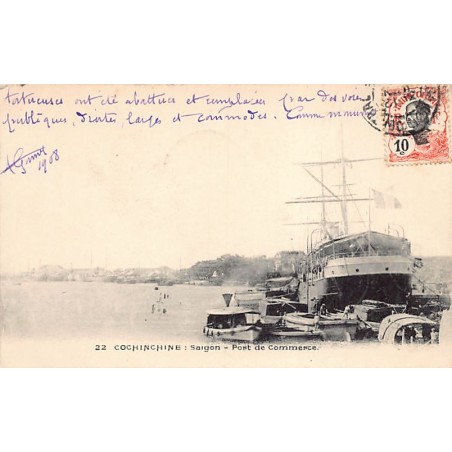 tortueuses ont été abattues et remplacées par des voies
publiques, droites, larges et commodes. Comme
1908
10
22 COCHINCHINE : Saigon - Port de Commerce.